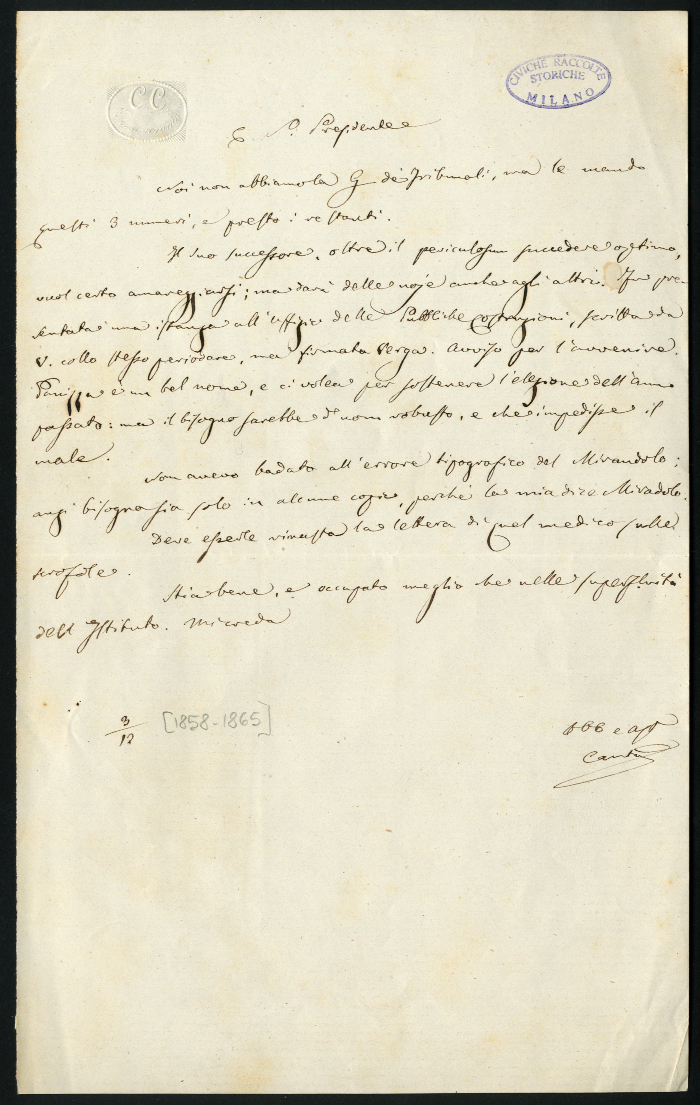 CC
CIVICHE RACCOLTE
STORICHE
MILANO
E. Sr. Presidente
Noi non abbiamo la G. dei Tribunali, ma le mando
questi 3 numeri, e presto i restanti.
Il suo successore, oltre il periculosum succedere optimo,
vuol certo amareggiarsi; ma darà delle noje anche agli altri. Fu pre-
sentata una istanza all'uffizio delle Pubbliche Costruzioni, scritta da
V. collo stesso periodare, ma firmata Verga. Avviso per l'avvenire.
Panizza è un bel nome, e ci volea per sostenere l'elezione dell'anno
passato: ma il bisogno sarebbe d'uom robusto, e che impedisse il
male.
Non avevo badato all'errore tipografico del Mirandolo;
anzi bisogna sia solo in alcune copie, perchè la mia dice Miradolo.
Deve essere rimasta la lettera di quel medico sulle
scrofole.
Stia bene, e occupato meglio che nelle superfluità
dell'Istituto. Mi creda
3/12
[1858-1865]
obb e aff
Cantù